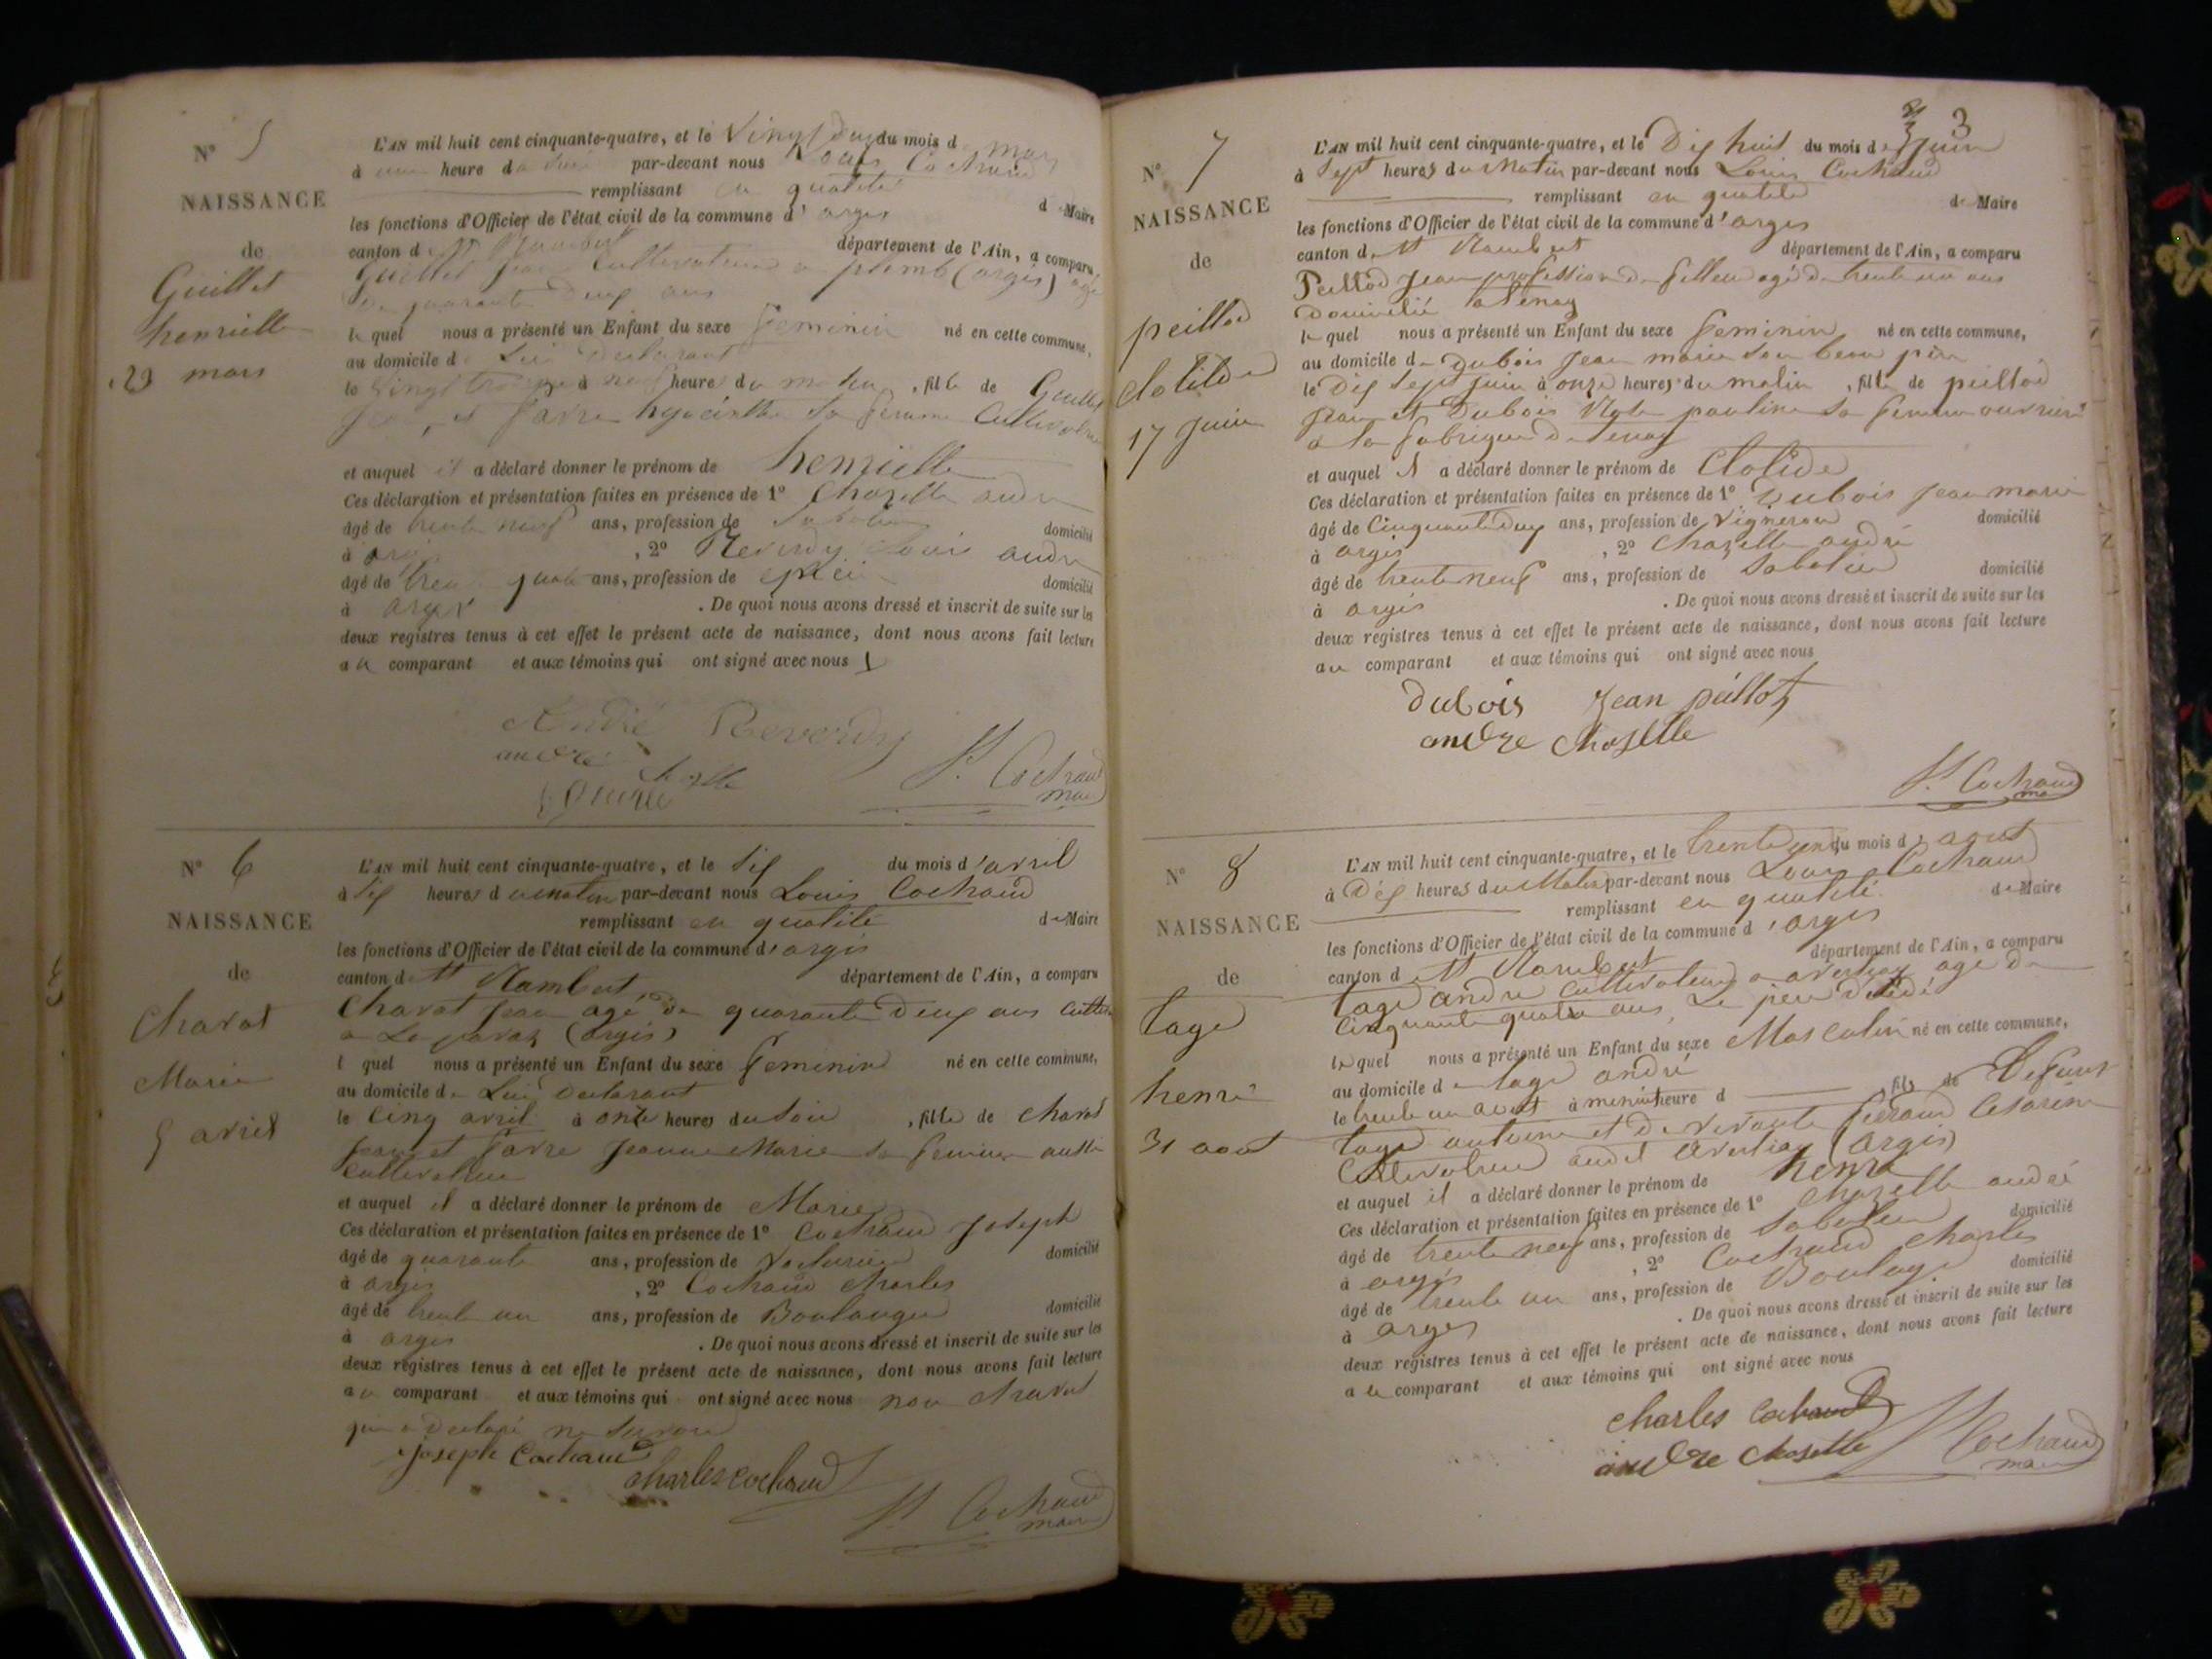 N° 5
NAISSANCE
de
Guillet
henriette
23 mars
L'AN mil huit cent cinquante-quatre, et le Vingt du mois d mars
à une heure du par-devant nous Louis Cochaud
remplissant en qualité de Maire
les fonctions d'Officier de l'état civil de la commune d'argis
canton de St Rambert département de l'Ain, a comparu
Guillet Jean Cultivateur a plomb (argis) agé
de quarante deux ans
lequel nous a présenté un Enfant du sexe feminin né en cette commune,
au domicile de Lui Declarant
le Vingt trois à neuf heure du matin, fille de Guillet
Jean, et favre hyacinthe Sa femme Cultivatrice
et auquel il a déclaré donner le prénom de henriette
Ces déclaration et présentation faites en présence de 1° Chazelle andre
âgé de trente neuf ans, profession de Sabotier domicilié
à argis, 2° Reverdy Louis andre
âgé de trente quatre ans, profession de domicilié
à argis. De quoi nous avons dressé et inscrit de suite sur les
deux registres tenus à cet effet le présent acte de naissance, dont nous avons fait lecture
au comparant et aux témoins qui ont signé avec nous
André Reverdy
andre chazelle
L. Cochaud
maire
N° 6
NAISSANCE
de
Charat
Marie
5 avril
L'AN mil huit cent cinquante-quatre, et le Six du mois d'avril
à Six heures du matin par-devant nous Louis Cochaud
remplissant en qualité de Maire
les fonctions d'Officier de l'état civil de la commune d'argis
canton de St Rambert département de l'Ain, a comparu
Charat Jean agé de quarante Deux ans
(argis)
l quel nous a présenté un Enfant du sexe feminin né en cette commune,
au domicile de Lui Declarant
le Cinq avril à onze heures du Soir, fille de charat
Jean et favre Jeanne Marie sa femme aussi
cultivatrice
et auquel il a déclaré donner le prénom de Marie
Ces déclaration et présentation faites en présence de 1° Cochaud Joseph
âgé de quarante ans, profession de Voiturier domicilié
à argis, 2° Cochaud charles
âgé de trente un ans, profession de Boulanger domicilié
à argis. De quoi nous avons dressé et inscrit de suite sur les
deux registres tenus à cet effet le présent acte de naissance, dont nous avons fait lecture
au comparant et aux témoins qui ont signé avec nous non charat
qui a Declaré ne Savoir
Joseph Cochaud
charles cochaud
L. Cochaud
maire
3
N° 7
NAISSANCE
de
peillod
Clotilde
17 Juin
L'AN mil huit cent cinquante-quatre, et le Dix huit du mois de Juin
à Sept heures du Matin par-devant nous Louis Cochaud
remplissant en qualité de Maire
les fonctions d'Officier de l'état civil de la commune d'argis
canton de St Rambert département de l'Ain, a comparu
Peillod Jean profession de agé de trente un ans
Domicilié a Tenay
lequel nous a présenté un Enfant du sexe feminin né en cette commune,
au domicile de Dubois Jean marie Son beau père
le Dix Sept Juin à onze heures du matin, fille de peillod
Jean et Dubois pauline Sa femme ouvrière
a la fabrique de Tenay
et auquel il a déclaré donner le prénom de Clotide
Ces déclaration et présentation faites en présence de 1° Dubois Jean marie
âgé de Cinquante Deux ans, profession de Vigneron domicilié
à argis, 2° Chazelle andré
âgé de trente neuf ans, profession de Sabotier domicilié
à argis. De quoi nous avons dressé et inscrit de suite sur les
deux registres tenus à cet effet le présent acte de naissance, dont nous avons fait lecture
au comparant et aux témoins qui ont signé avec nous
dubois Jean peillot
andre chazelle
L. Cochaud
maire
N° 8
NAISSANCE
de
tage
henri
31 aout
L'AN mil huit cent cinquante-quatre, et le trente un du mois d'aout
à Dix heures du Matin par-devant nous Louis Cochaud
remplissant en qualité de Maire
les fonctions d'Officier de l'état civil de la commune d'argis
canton de St Rambert département de l'Ain, a comparu
tage andre cultivateur a agé de
Cinquante quatre ans,
lequel nous a présenté un Enfant du sexe Masculin né en cette commune,
au domicile de tage andré
le trente un aout à minuit heure d , fils de Defunt
tage antoine et de Cesarine
Cultivatrice (argis)
et auquel il a déclaré donner le prénom de henri
Ces déclaration et présentation faites en présence de 1° Chazelle andré
âgé de trente neuf ans, profession de Sabotier domicilié
à argis, 2° Cochaud charles
âgé de trente un ans, profession de domicilié
à argis. De quoi nous avons dressé et inscrit de suite sur les
deux registres tenus à cet effet le présent acte de naissance, dont nous avons fait lecture
a le comparant et aux témoins qui ont signé avec nous
charles Cochaud
andre chazelle
L. Cochaud
maire